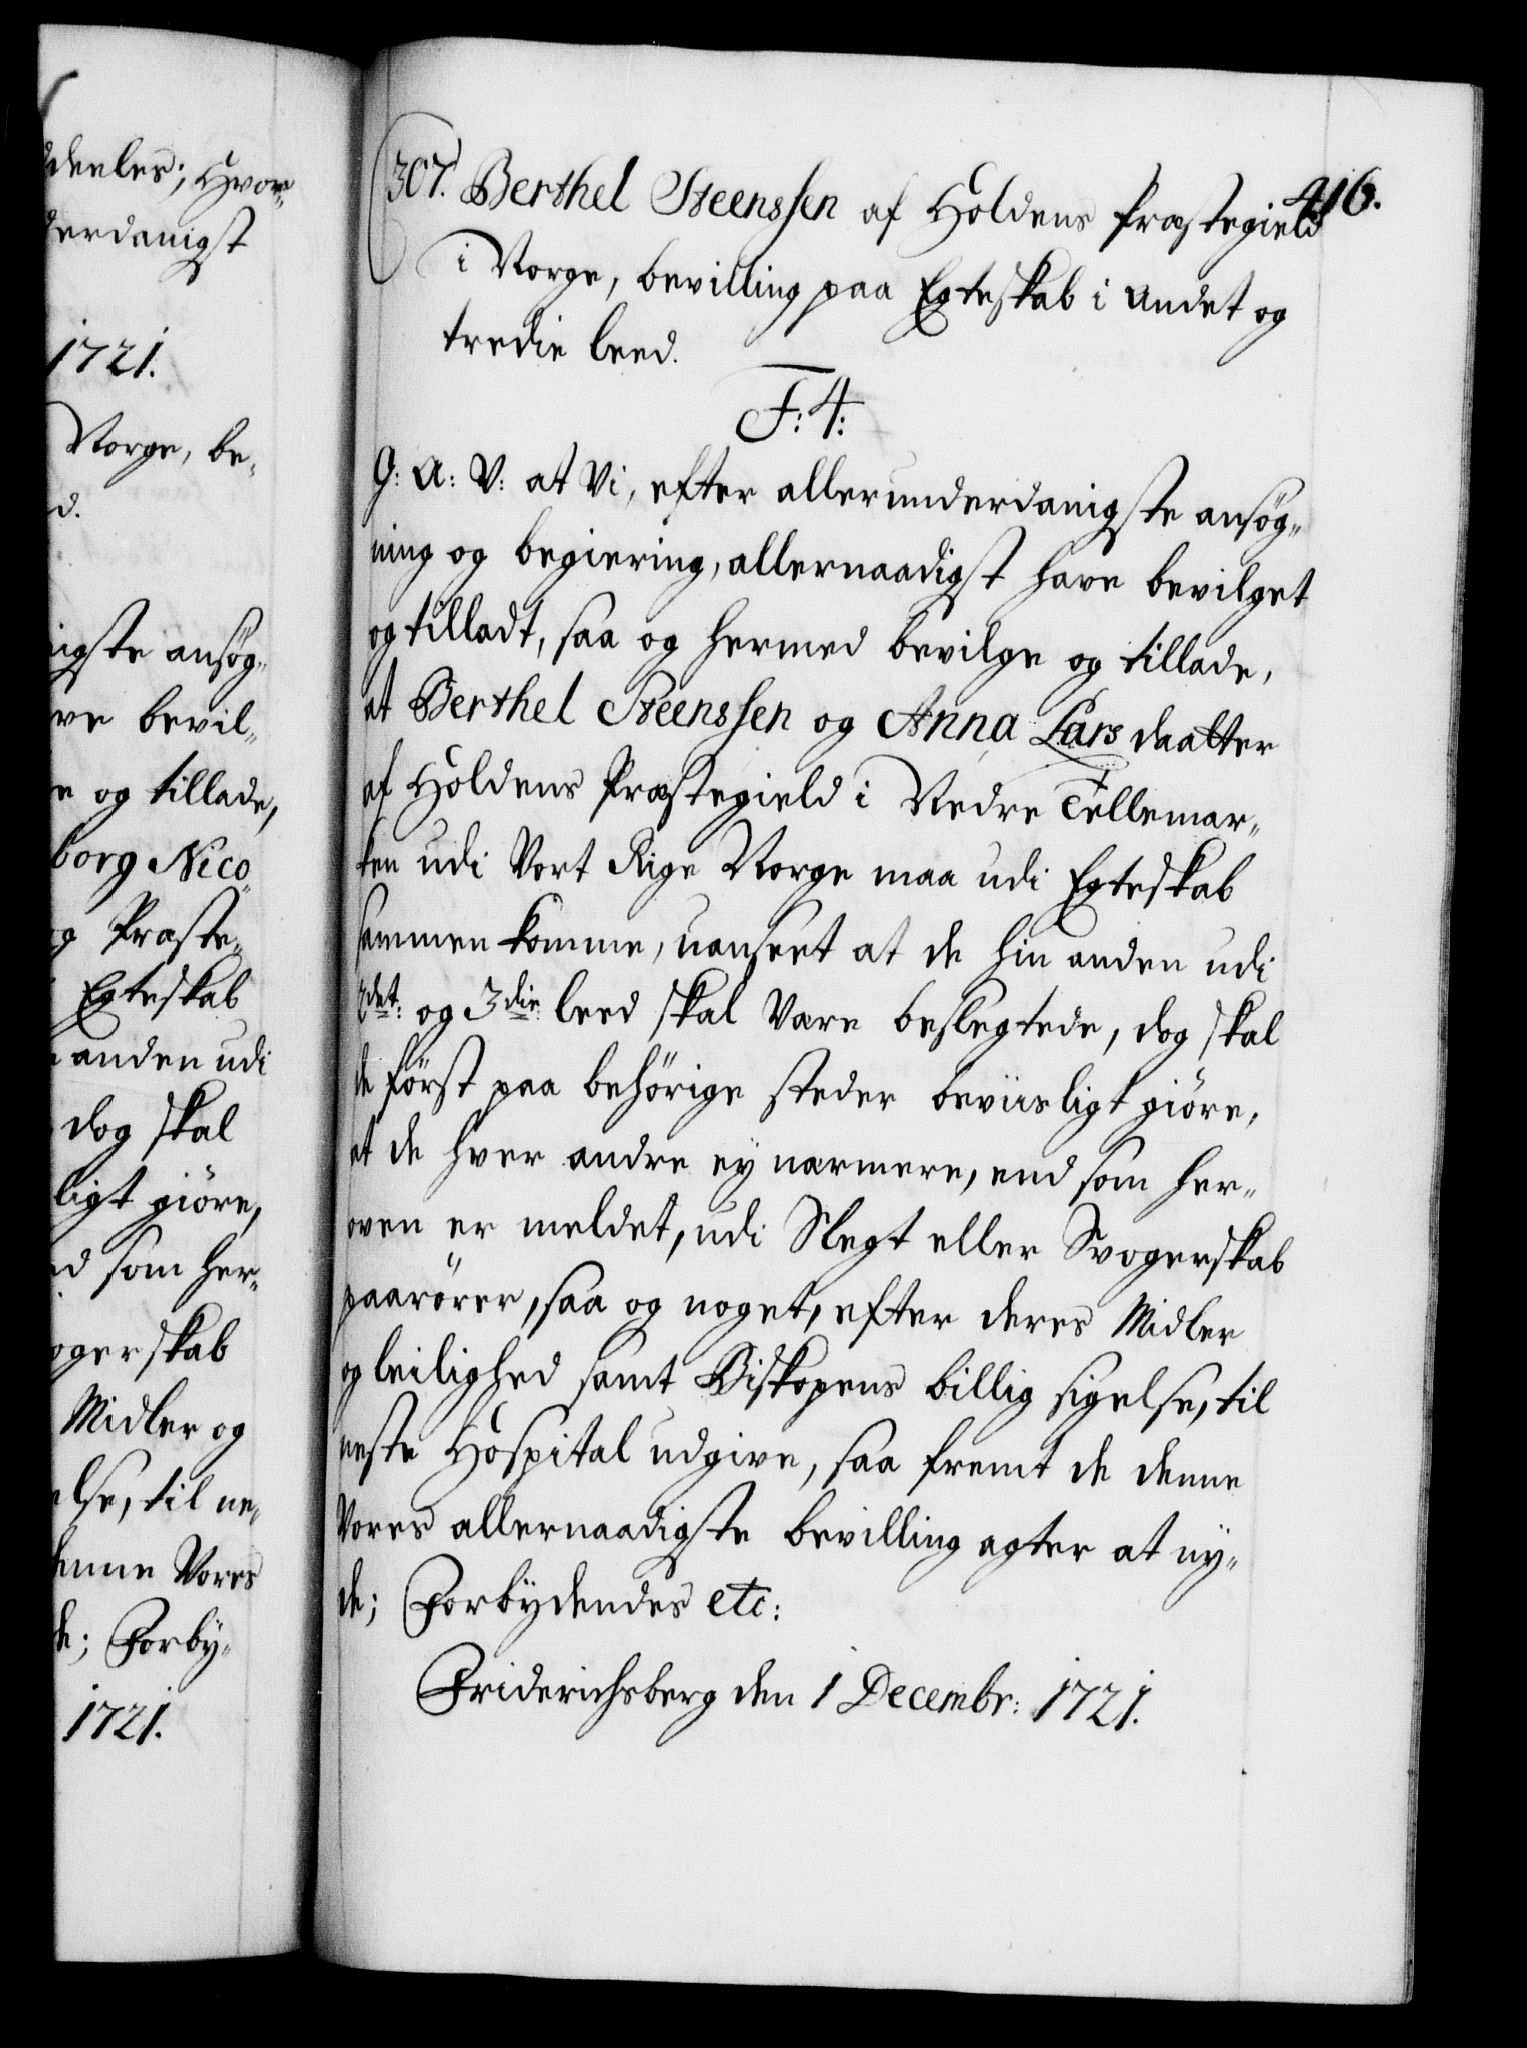 deeles; Hvor-
derdanigst
1721.
Norge, be-
d.
igste ansøg-
ve bevil-
e og tillade,
borg Nico-
og Præste-
Egteskab
anden udi
dog skal
ligt giöre,
d som her-
ogerskab
Midler og
else, til ne-
denne Vores
de; Forby-
1721.
416.
307. Berthel Steenssen af Holdens Præstegield
i Norge, bevilling paa Egteskab i andet og
tredie leed.
F: 4:
G: A: V: at Vi, efter allerunderdanigste ansög-
ning og begiering, allernaadigst have bevilget
og tilladt, saa og hermed bevilge og tillade,
at Berthel Steenssen og Anna Lars daatter
af Holdens Præstegield i Nedre Tellemar-
ken udi Vort Rige Norge maa udi Egteskab
sammen komme, uanseet at de hin anden udi
2det: og 3die leed skal være beslegtede, dog skal
de först paa behörige steder beviisligt giöre,
at de hver andre ey nærmere, end som her-
oven er meldet, udi Slegt eller Svogerskab
paarörer, saa og noget, efter deres Midler
og leilighed samt Biskopens billig sigelse, til
neste Hospital udgive, saa fremt de denne
Vores allernaadigste bevilling agter at ny-
de; Forbydendes etc:
Friderichsberg den 1 Decembr: 1721.